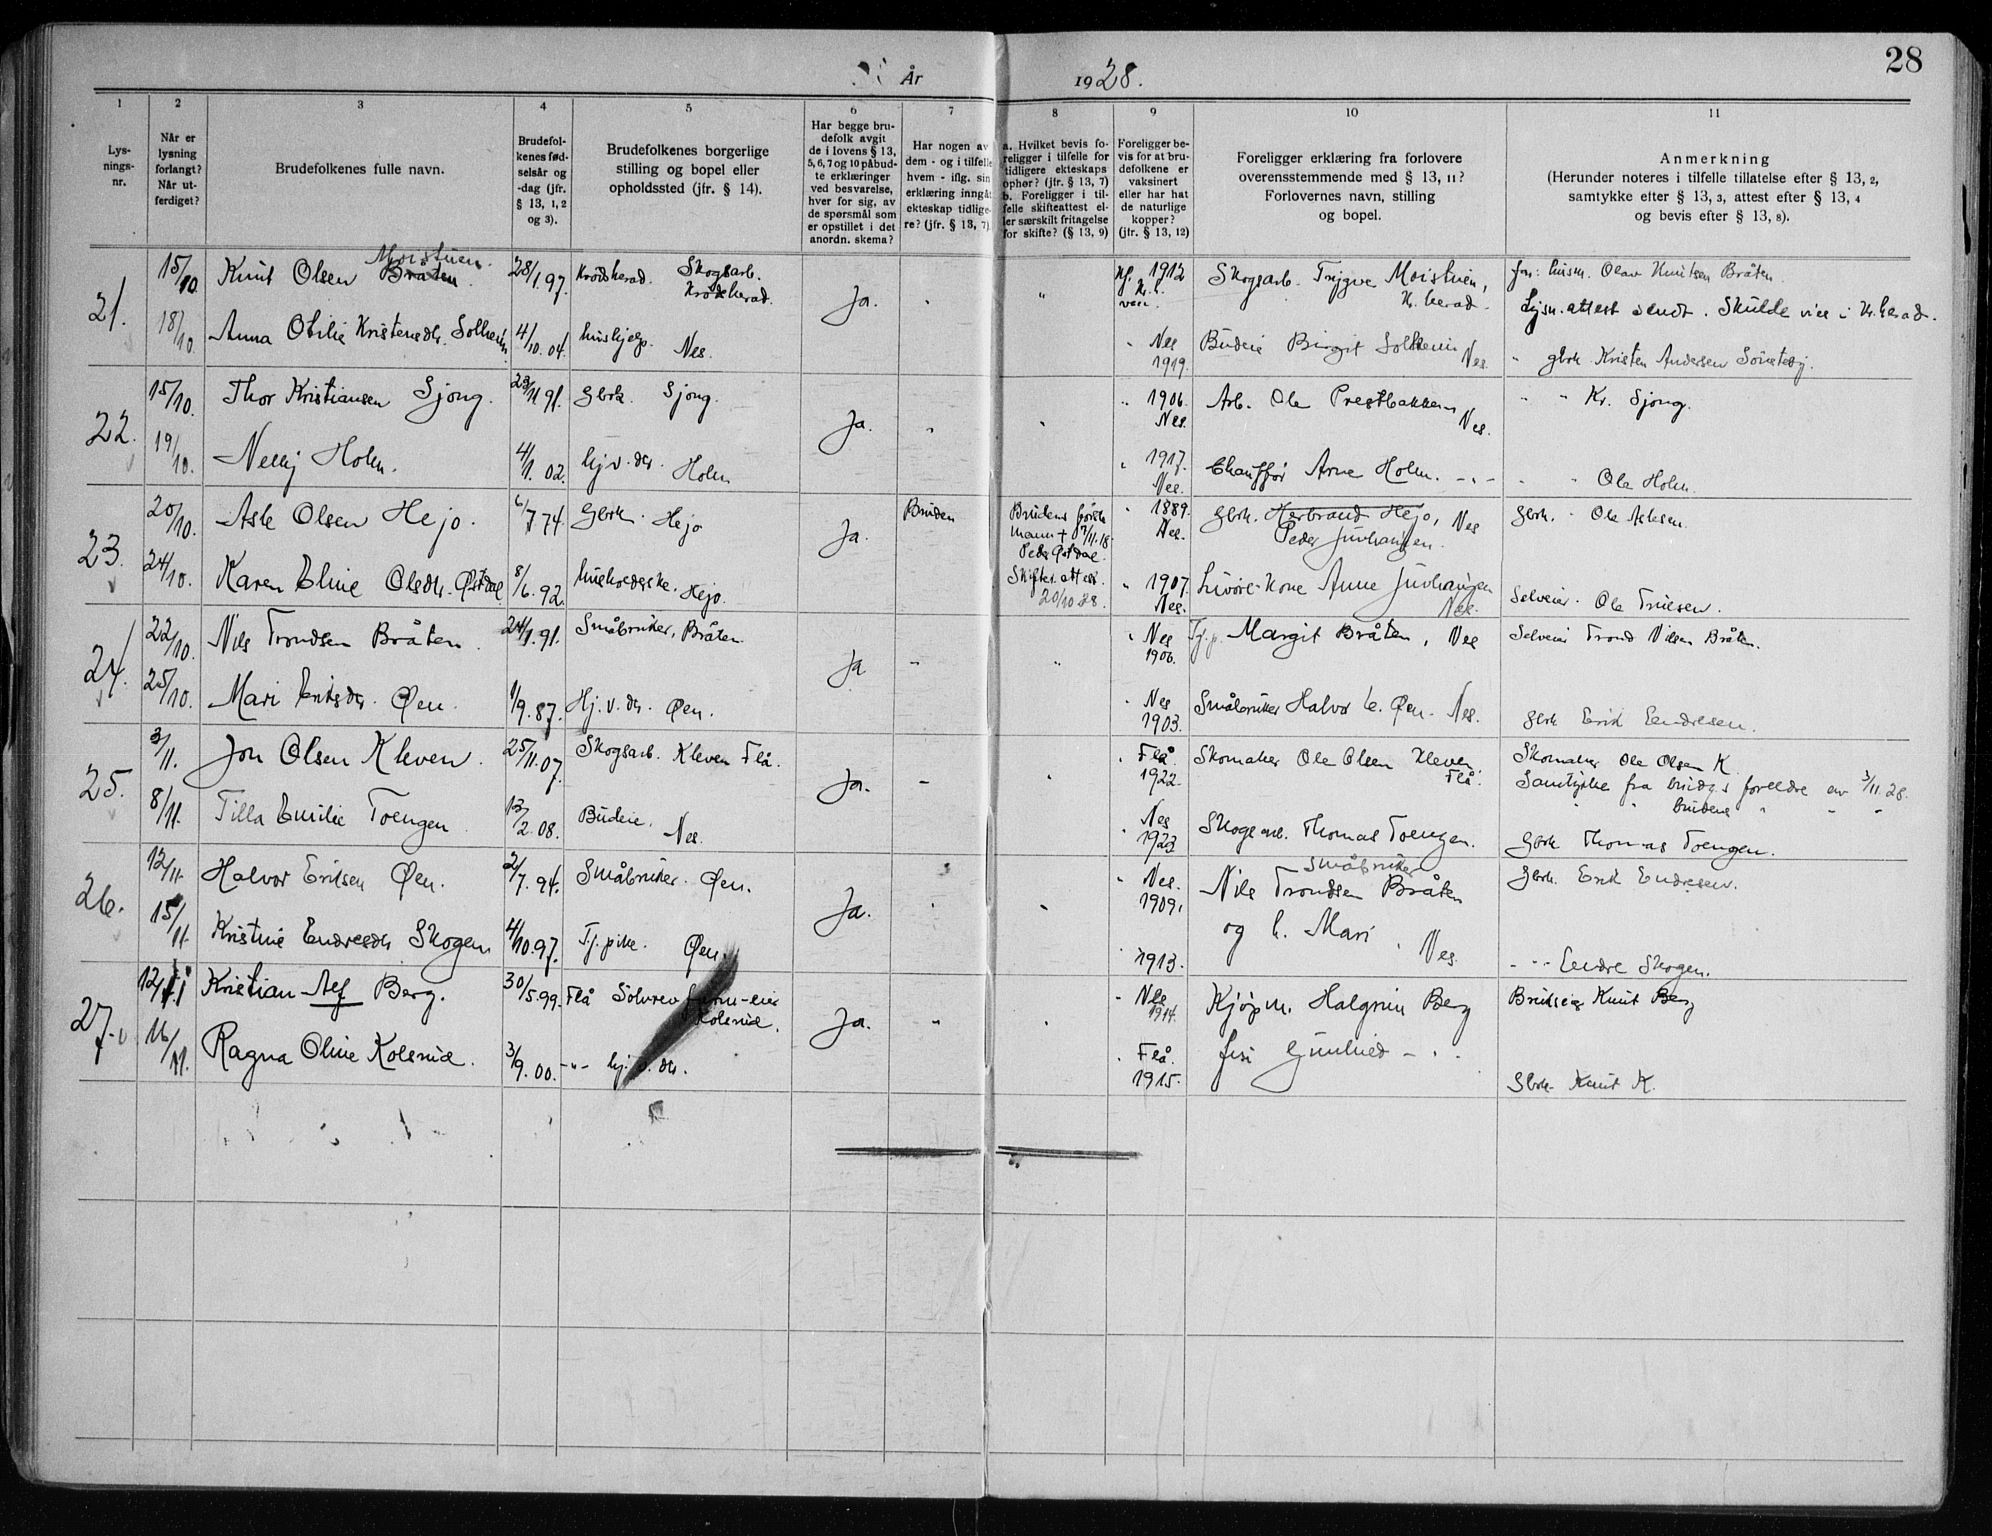 28
År 1928.
1 2 3 4 5 6 7 8 9 10 11
Lys-
nings-
nr.
Når er
lysning
forlangt?
Når ut-
ferdiget?
Brudefolkenes fulle navn.
Brudefol-
kenes fød-
selsår og
-dag (jfr.
§ 13, 1, 2
og 3).
Brudefolkenes borgerlige
stilling og bopel eller
opholdssted (jfr. § 14).
Har begge bru-
defolk avgit
de i lovens § 13,
5, 6, 7 og 10 påbud-
te erklæringer
ved besvarelse,
hver for sig, av
de spørsmål som
er opstillet i det
anordn. skema?
Har nogen av
dem - og i tilfelle
hvem - iflg. sin
erklæring inngåt
ekteskap tidlige-
re? (jfr. § 13, 7).
a. Hvilket bevis fo-
religger i tilfelle for
tidligere ekteskaps
ophør? (jfr. § 13, 7)
b. Foreligger i til-
felle skifteattest el-
ler særskilt fritagelse
for skifte? (§ 13, 9)
Foreligger be-
vis for at bru-
defolkene er
vaksinert
eller har hat
de naturlige
kopper?
(jfr. § 13, 12)
Foreligger erklæring fra forlovere
overensstemmende med § 13, 11?
Forlovernes navn, stilling
og bopel.
Anmerkning
(Herunder noteres i tilfelle tillatelse efter § 13, 2,
samtykke efter § 13, 3, attest efter § 13, 4
og bevis efter § 13, 8).
21.
15/10
18/10.
Moistuen.
Knut Olsen Bråten
28/1.97.
Krødsherad. Skogsarb.
Krødsherad.
Ja.
1912
Skogsarb. Trygve Moistuen,
Kr. herad.
Olav Knutsen Bråten
Lysn. attest sendt. Skulde vies i Kr. herad.
Anna Otilie Kristensdtr. Solheim
4/10.04.
hushjelp. Nes.
" Nes
1919.
Budeie Birgit Solheim Nes.
" gbrk Kristen Andersen
22.
15/10.
19/10.
Thor Kristiansen Sjong.
23/11 91.
Gbrk. Sjong.
Ja.
" 1906.
Nes.
Arb. Ole Prestbakken
Nes.
" " Kr. Sjong.
Nelly Holm.
4/1. 02.
hj. v. dtr. Holm
" 1917.
Nes.
Chauffør Arne Holm. -"-
" " Ole Holm.
23.
20/10.
24/10.
Asle Olsen Hejo.
6/7.74.
Gbrk. Hejo
Ja.
Bruden
Brudens første
mann + 17/11.18
Peder Østdal.
Skifteattest
20/10 28.
" 1889.
Nes.
Gbrk. Herbrand Hejo, Nes
Peder Juvhaugen.
Gbrk. Ole Aslesen.
Karen Eline Olsdtr. Østdal
8/6.92.
husholderske. Hejo.
" 1907.
Nes.
Livøre-kone Anne Juvhaugen
Nes.
Selveier. Ole Trulsen.
24.
22/10.
25/10.
Nils Trondsen Bråten.
24/1.91.
Småbruker, Bråten
Ja
" Nes
1906.
Tj. p. Margit Bråten, Nes
Selveier Trond Nilsen Bråten.
Mari Eriksdtr. Øen.
1/9.87.
Hj. v. dtr. Øen.
" Nes
1903.
Småbruker Halvor E. Øen. Nes.
Gbrk Erik Endresen.
25.
3/11.
8/11.
Jon Olsen Kleven.
25/11.07.
Skogsarb. Kleven Flå.
Ja.
" Flå
1922.
Skomaker Ole Olsen Kleven.
Flå.
Skomaker Ole Olsen K.
Samtykke fra brudgs foreldre av 3/11.28.
" " brudens " " "
Tilla Emilie Toengen
13/2.08.
Budeie. Nes.
Nes
" 1923
Skogsarb. Thomas Toengen.
Gbrk Thomas Toengen.
26.
12/11.
15/11.
Halvor Eriksen Øen.
2/7.94.
Småbruker. Øen.
Ja.
" Nes.
1909.
Småbruker
Nils Trondsen Bråten
og h. Mari. Nes.
Gbrk. Erik Endresen.
Kristine Endresdtr Skogen
4/10.97.
Tj. pike. Øen.
" 1913.
- " - Endre Skogen.
27.
12/11
16/11.
Kristian Alf Berg.
30/5.99.
Flå Sølvrevfarm-eier
Kolsrud.
Ja.
" Nes
1914.
Kjøpm. Halgrim Berg
Brukseier Knut Berg
Ragna Oline Kolsrud.
3/9.00.
-"- hj. v. dtr.
" Flå.
1915.
Gunhild -"-
Gbrk. Knut K.